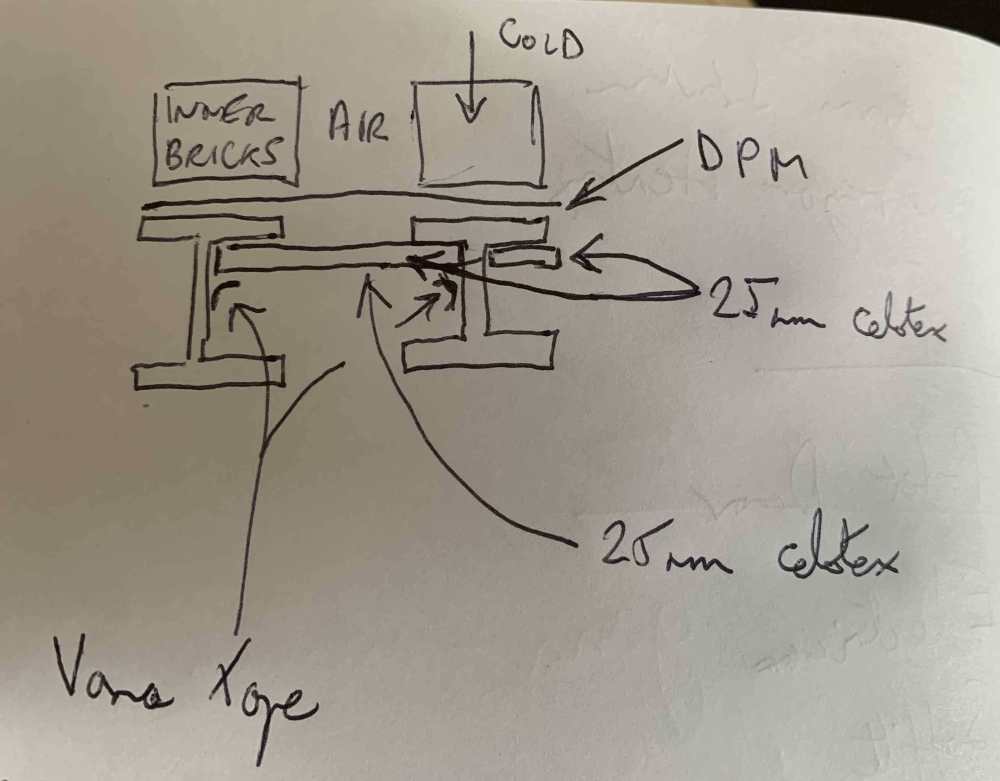 COLD
INNER
BRICKS
AIR
DPM
25mm celotex
25mm celotex
Tape